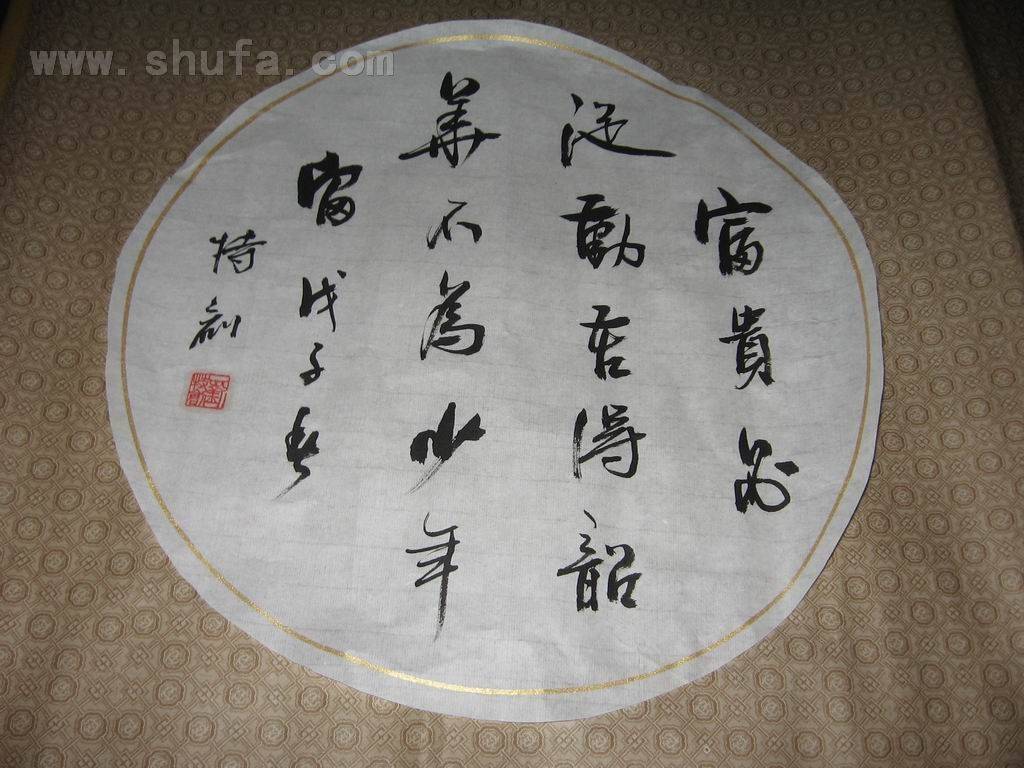 www.shufa.com
富貴必
從勤苦得韶
華不為少年
留戊子春